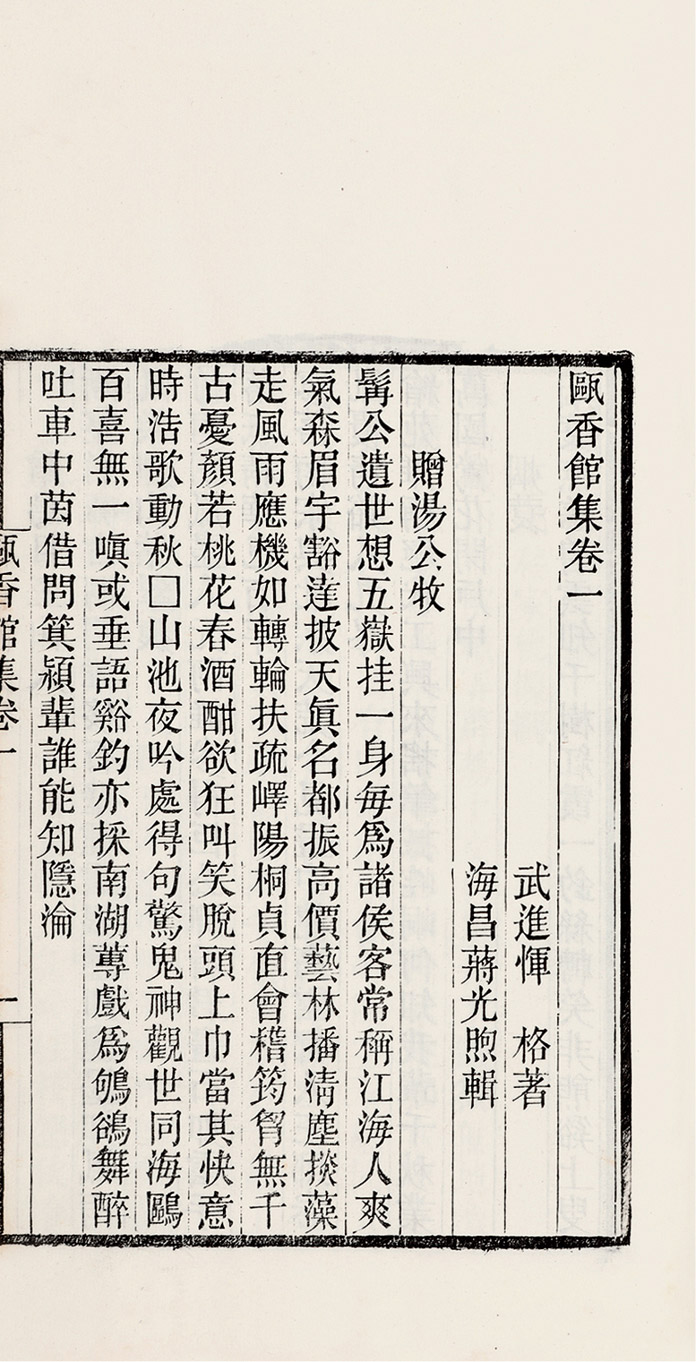 甌香館集卷一
武進惲 格著
海昌蔣光煦輯
贈湯公牧
髯公遺世想五嶽挂一身每爲諸侯客常稱江海人爽
氣森眉宇豁達披天眞名都振高價藝林播淸塵掞藻
走風雨應機如轉輪扶疏嶧陽桐貞直會稽筠胷無千
古憂顏若桃花春酒酣欲狂叫笑脫頭上巾當其快意
時浩歌動秋□山池夜吟處得句驚鬼神觀世同海鷗
百喜無一嗔或垂語谿釣亦採南湖蓴戲爲鴝鵒舞醉
吐車中茵借問箕潁輩誰能知隱淪
甌香館集卷一
一